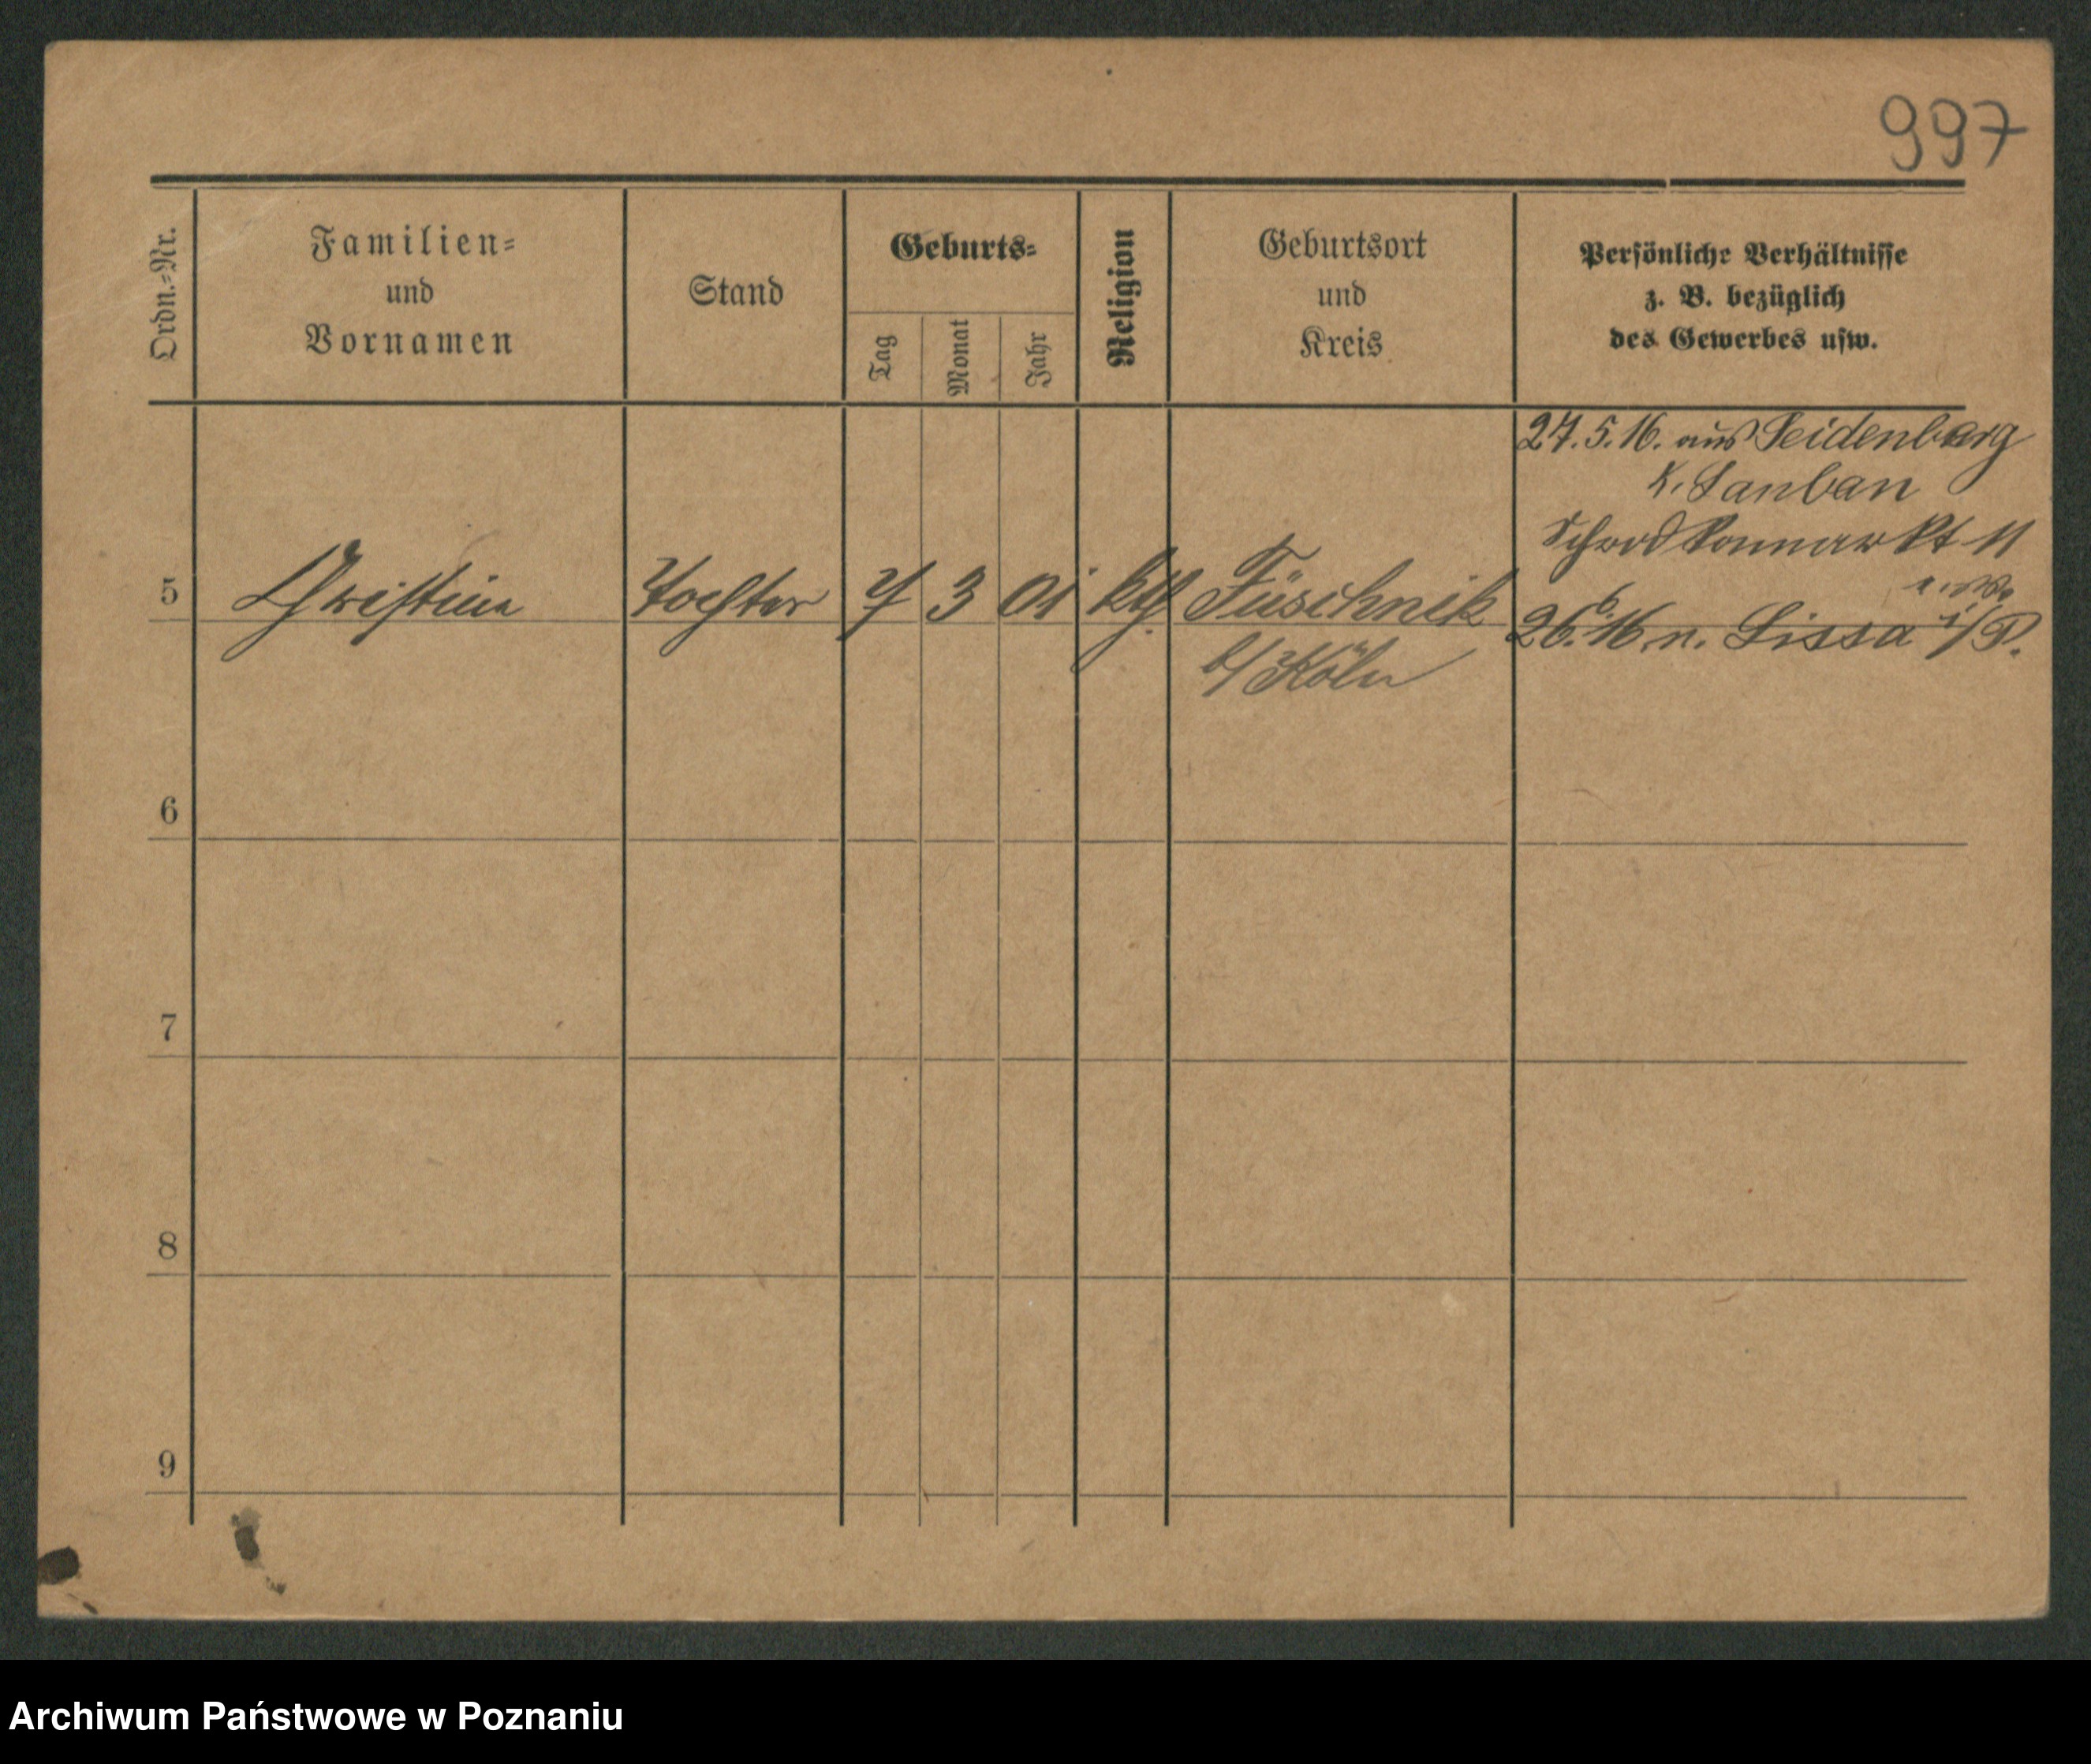 997
Ordn.-Nr.
Familien-
und
Vornamen
Stand
Geburts-
Tag
Monat
Jahr
Religion
Geburtsort
und
Kreis
Persönliche Verhältnisse
z. B. bezüglich
des Gewerbes usw.
27.5.16. aus Seidenberg
K. Lauban
5 Christina Tochter 7 3 01 kth Füschnik
b/Köln
26.6.16. n. Lissa i/P.
6
7
8
9
Archiwum Państwowe w Poznaniu